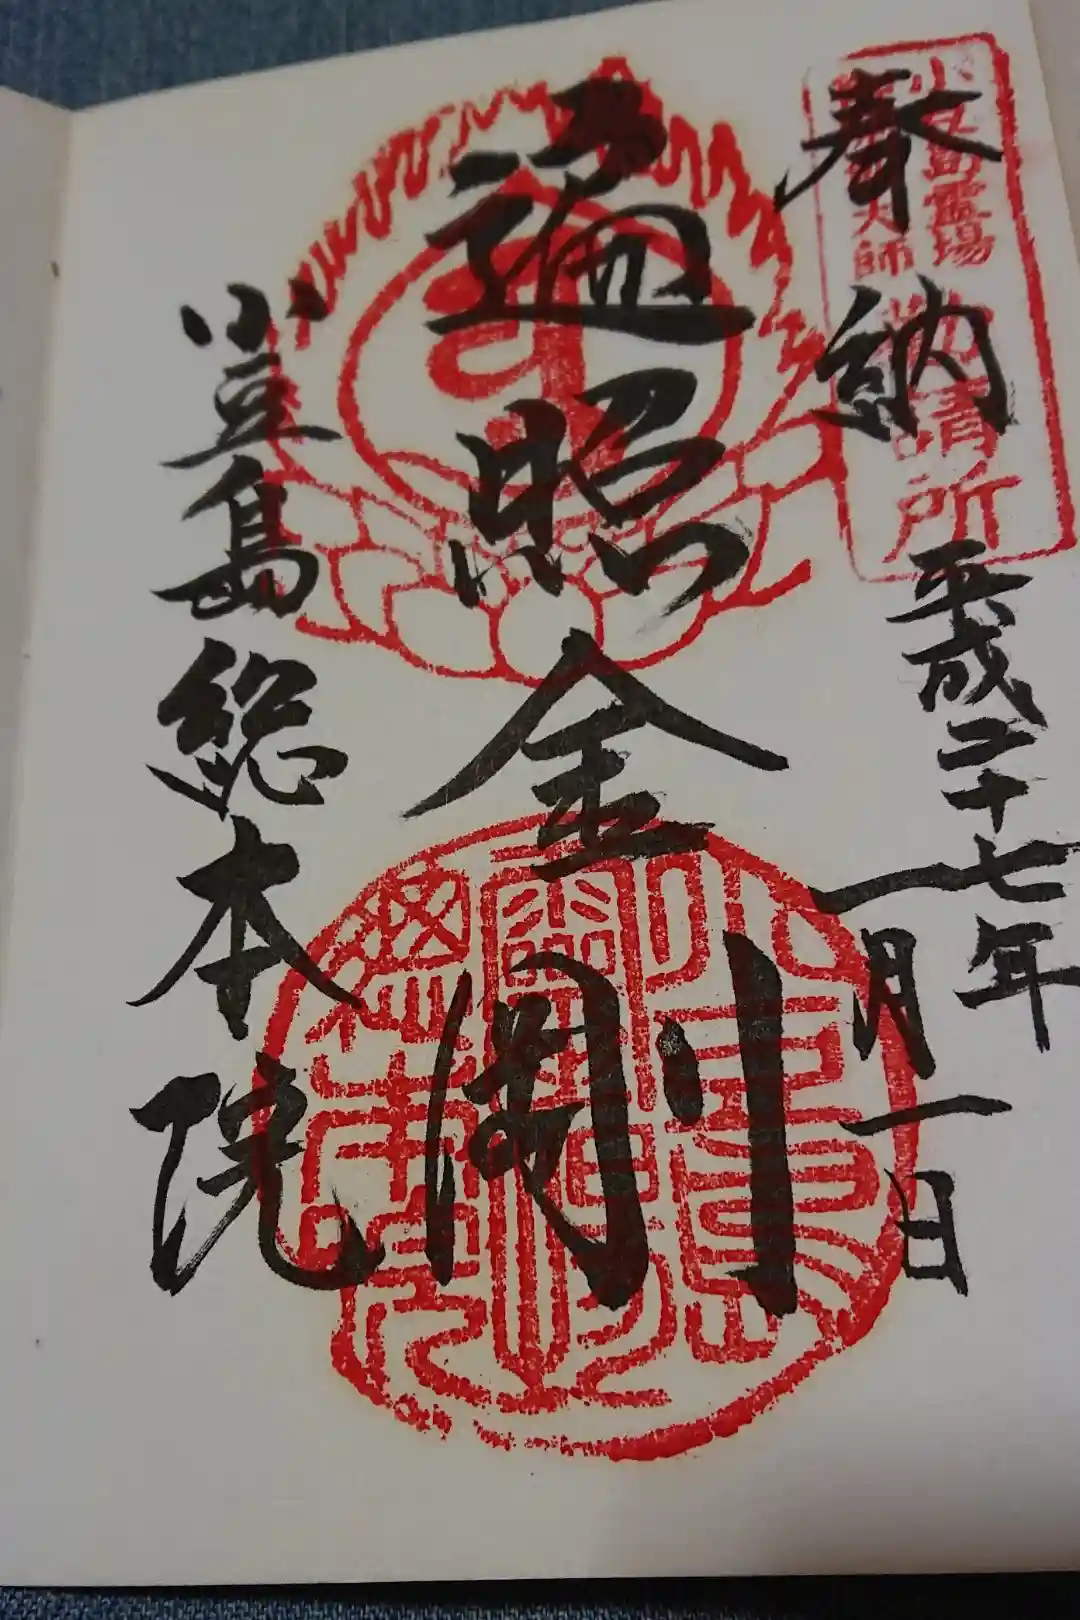 奉納
平成二十七年
一月一日
遍照金剛
小豆島総本院
小豆島霊場
大師
勧請所